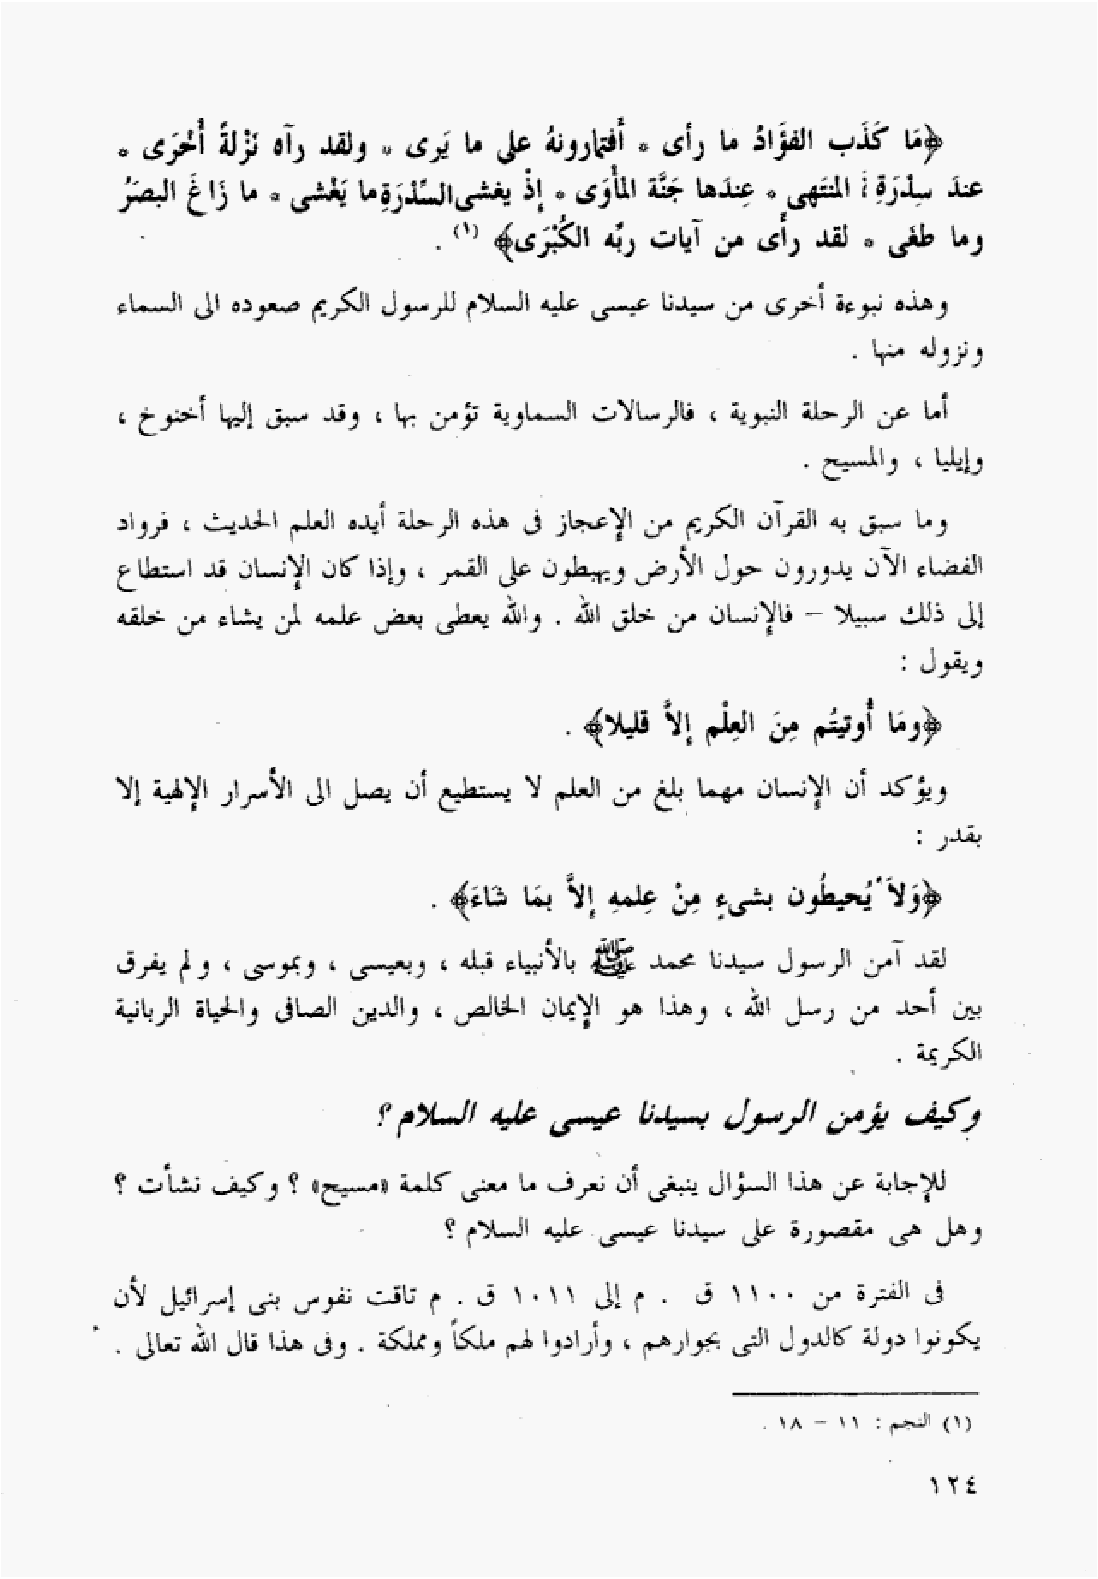 ﴿مَا كَذَب الفؤَادُ ما رأى * أَفتمارونهُ على ما يَرى * ولقد رآه نَزْلةً أُخْرَى *
عندَ سِدْرَةِ المنتَهى * عِندَها جَنَّة المأْوَى * إِذْ يغشى السِّدْرَةِ ما يَغْشى * ما زَاغَ البصَرُ
وما طغى * لقد رأَى من آيات ربِّه الكُبْرَى﴾ (١) .
وهذه نبوءة أخرى من سيدنا عيسى عليه السلام للرسول الكريم صعوده الى السماء
ونزوله منها .
أما عن الرحلة النبوية ، فالرسالات السماوية تؤمن بها ، وقد سبق إليها أخنوخ ،
وإيليا ، والمسيح .
وما سبق به القرآن الكريم من الإعجاز فى هذه الرحلة أيده العلم الحديث ، فرواد
الفضاء الآن يدورون حول الأرض ويهبطون على القمر ، وإذا كان الإنسان قد استطاع
إلى ذلك سبيلا – فالإنسان من خلق الله . والله يعطى بعض علمه لمن يشاء من خلقه
ويقول :
﴿ومَا أُوتيتُم مِنَ العِلْم إلاَّ قليلا﴾ .
ويؤكد أن الإنسان مهما بلغ من العلم لا يستطيع أن يصل الى الأسرار الإلهية إلا
بقدر :
﴿وَلاَ يُحيطُون بشىءٍ مِنْ عِلمهِ إلاَّ بمَا شَاءَ﴾ .
لقد آمن الرسول سيدنا محمد ﷺ بالأنبياء قبله ، وبعيسى ، وبموسى ، ولم يفرق
بين أحد من رسل الله ، وهذا هو الإيمان الخالص ، والدين الصافى والحياة الربانية
الكريمة .
وكيف يؤمن الرسول بسيدنا عيسى عليه السلام ؟
للإجابة عن هذا السؤال ينبغى أن نعرف ما معنى كلمة «مسيح» ؟ وكيف نشأت ؟
وهل هى مقصورة على سيدنا عيسى عليه السلام ؟
فى الفترة من ١١٠٠ ق . م إلى ١٠١١ ق . م تاقت نفوس بنى إسرائيل لأن
يكونوا دولة كالدول التى بجوارهم ، وأرادوا لهم ملكاً ومملكة . وفى هذا قال الله تعالى .
(١) النجم : ١١ – ١٨ .
١٢٤